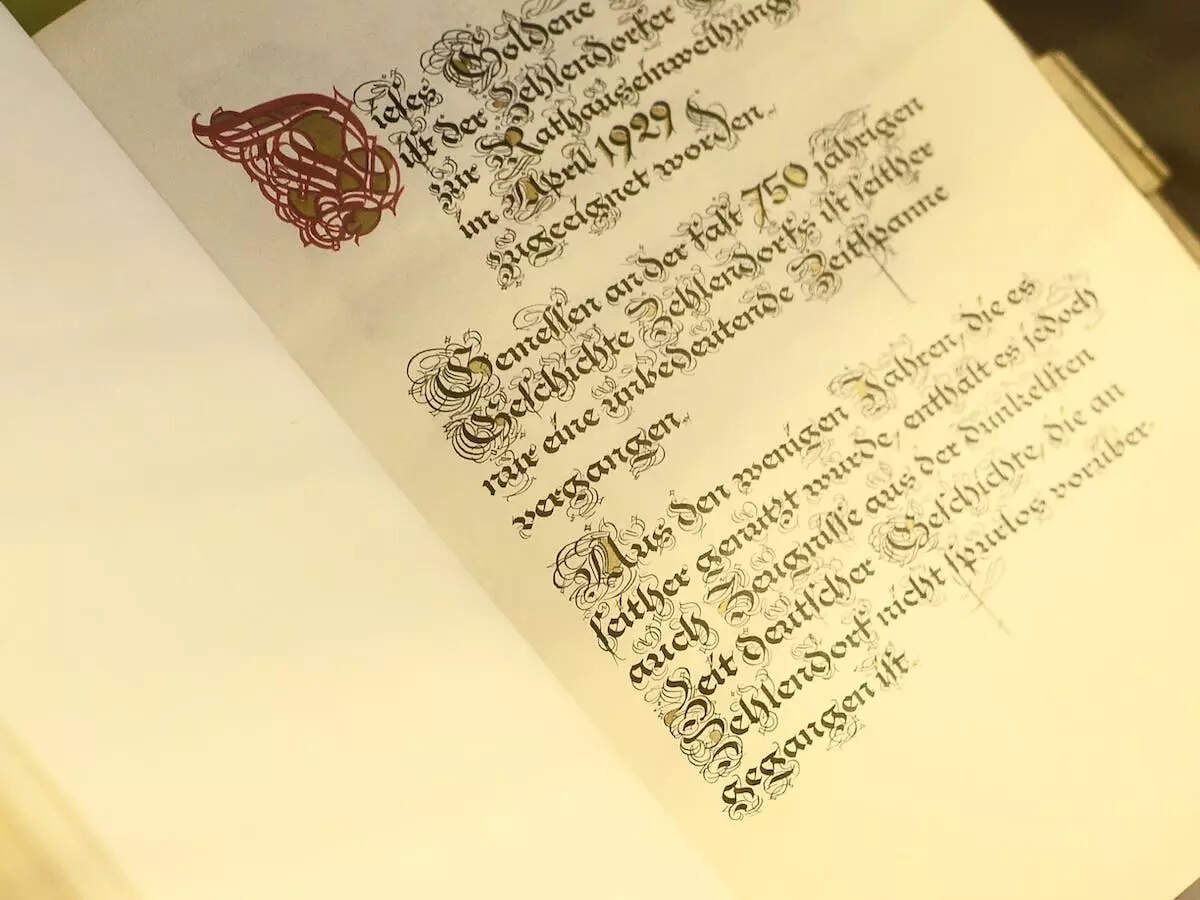 Dieses Goldene
ist der Zehlendorfer
zur Rathauseinweihung
im April 1929
zugeeignet worden.
Gemessen an der fast 750 jährigen
Geschichte Zehlendorfs ist seither
nur eine unbedeutende Zeitspanne
vergangen.
Aus den wenigen Jahren, die es
seither genutzt wurde, enthält es jedoch
auch Zeugnisse aus der dunkelsten
Zeit deutscher Geschichte, die an
Zehlendorf nicht spurlos vorüber-
gegangen ist.